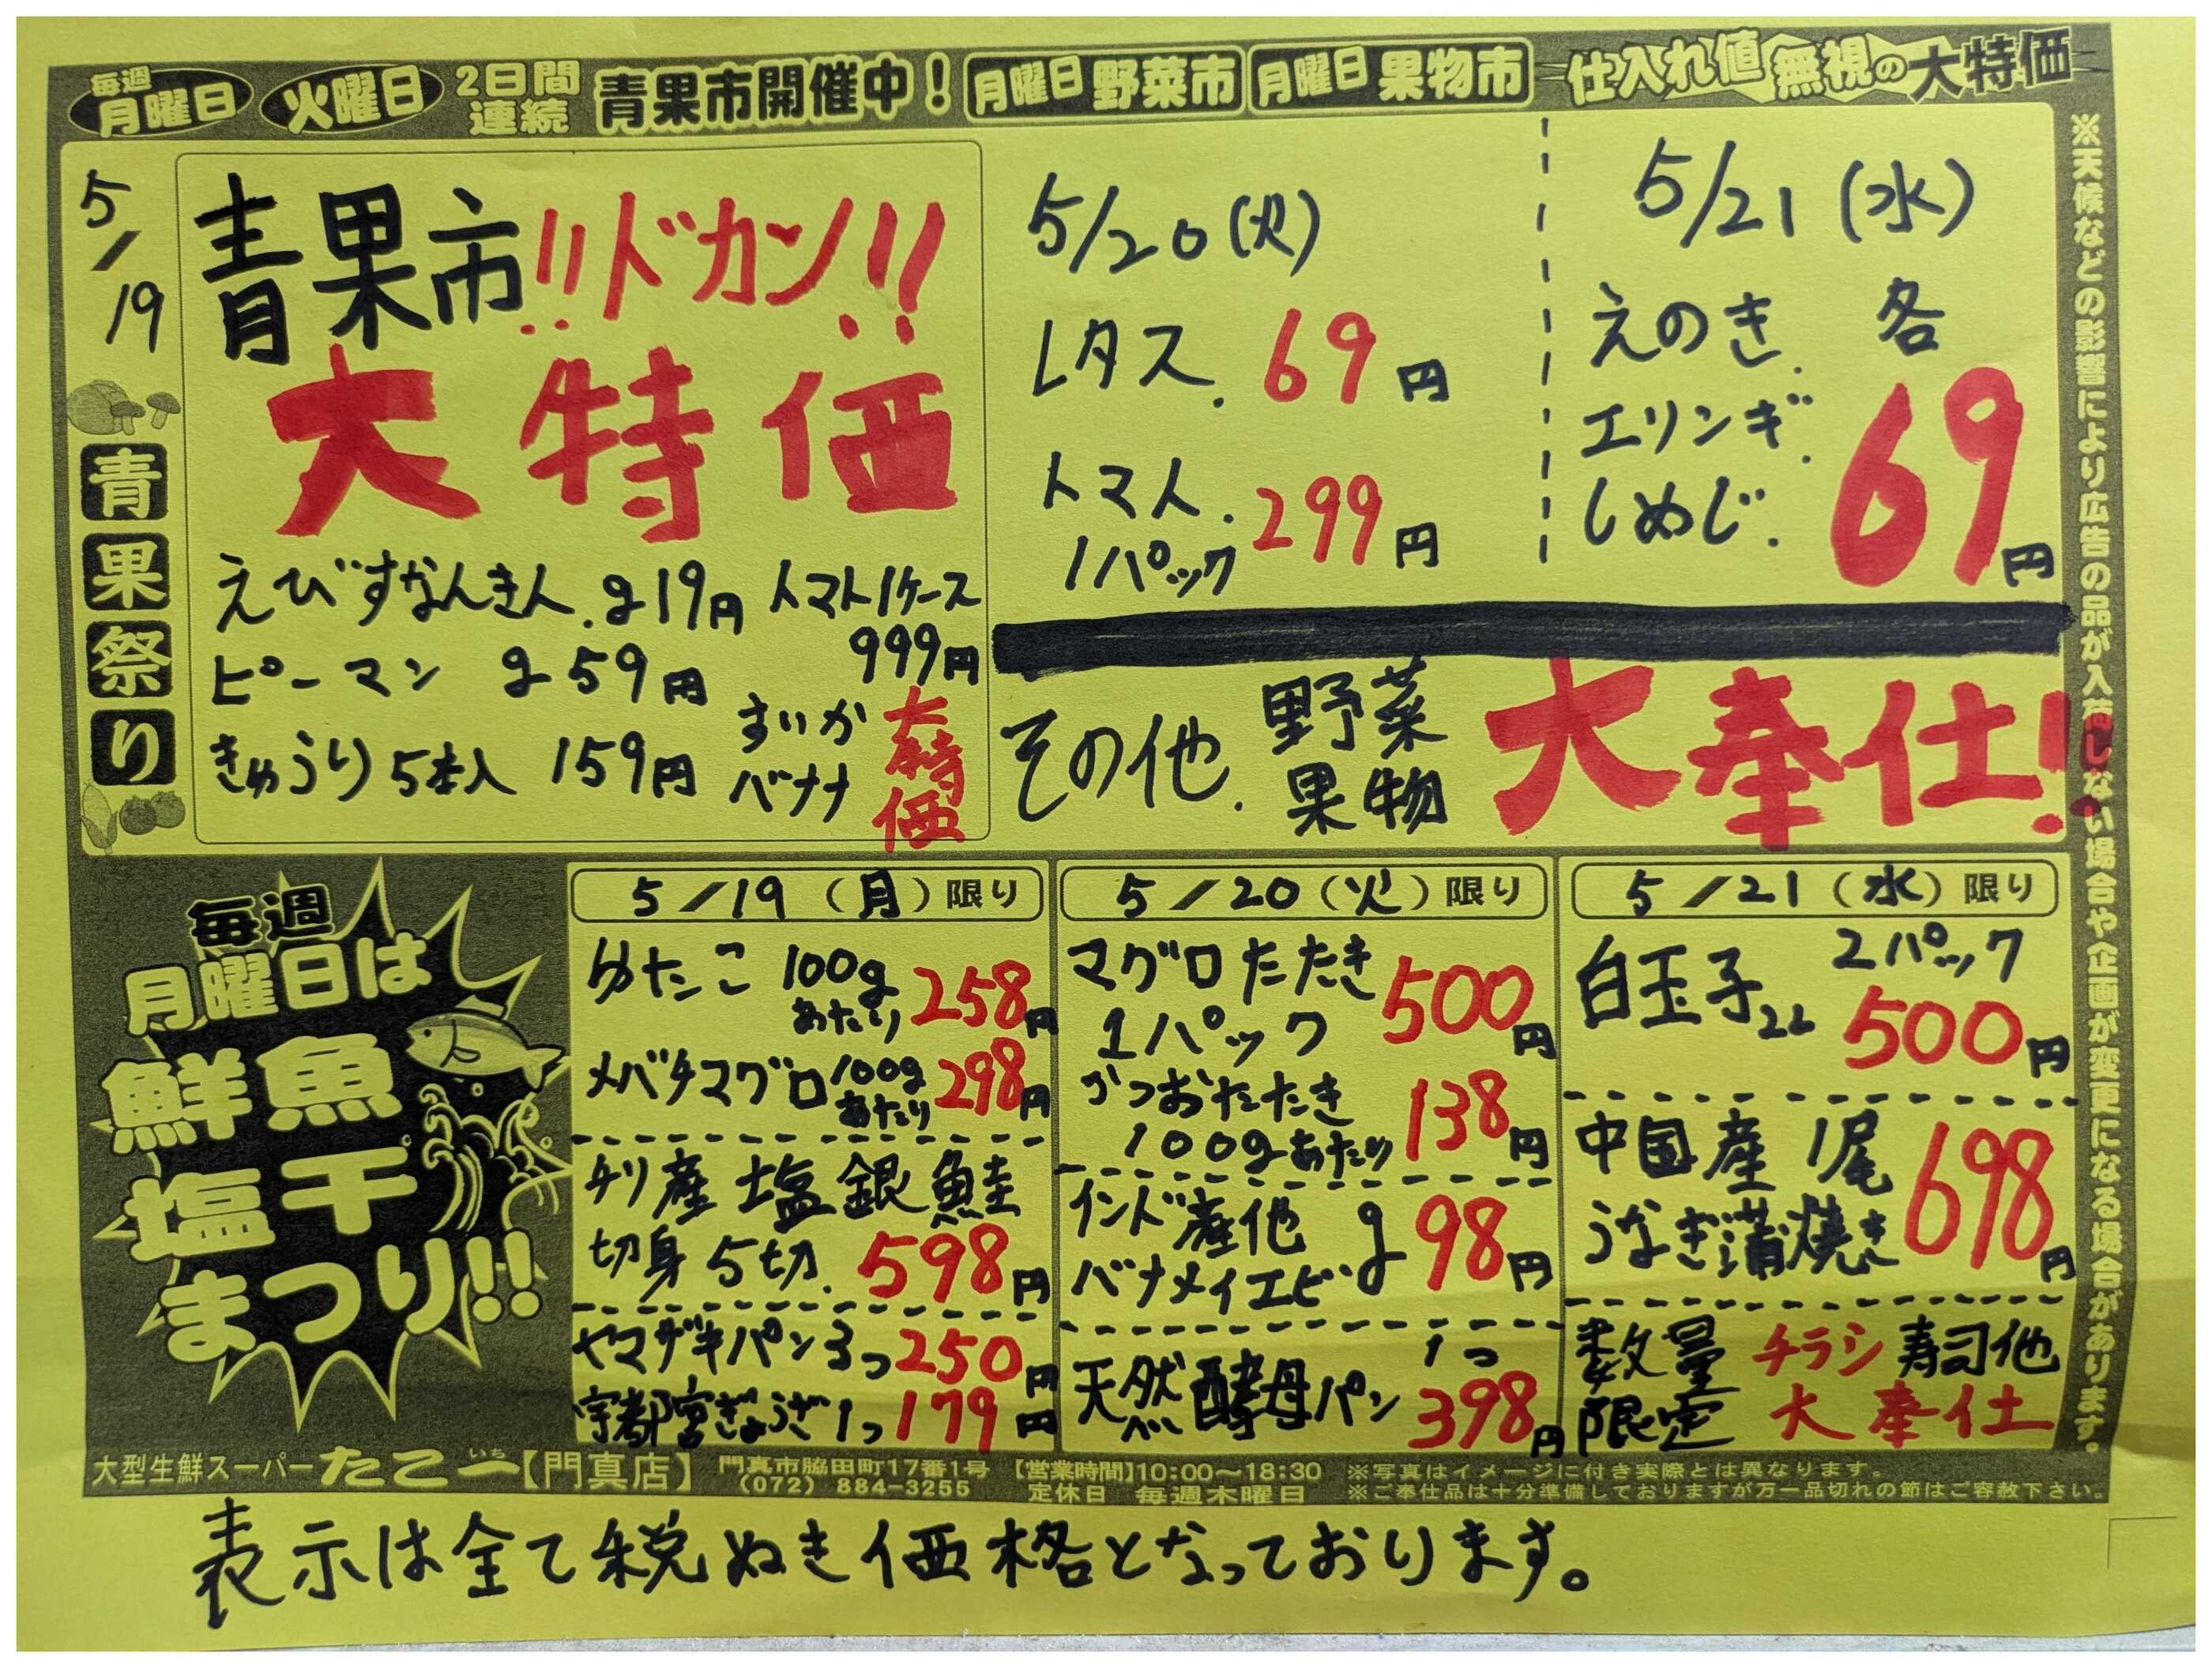 毎週
月曜日 火曜日 2日間
連続 青果市開催中! 月曜日 野菜市 月曜日 果物市 仕入れ値 無視の大特価
5/19
青果祭り
青果市!!ドカン!!
大特価
えびすなんきん.g19円
ピーマン g59円
きゅうり5本入 159円
トマト1ケース
999円
すいか
バナナ
大特価
5/20(火)
レタス.69円
トマト.
1パック 299円
5/21(水)
えのき.各
エリンギ.
しめじ.
69円
その他.野菜
果物
大奉仕!
※天候などの影響により広告の品が入荷しない場合や企画が変更になる場合があります。
毎週
月曜日は
鮮魚
塩干
まつり!!
5/19(月)限り
ゆたこ 100g
あたり 258円
メバチマグロ 100g
あたり 298円
チリ産 塩銀鮭
切身 5切.598円
ヤマザキパン 3つ 250円
宇都宮ぎょうざ 1つ 179円
5/20(火)限り
マグロたたき
1パック 500円
かつおたたき
100gあたり 138円
インド産他
バナメイエビ g98円
天然酵母パン 1つ
398円
5/21(水)限り
白玉子2L 2パック
500円
中国産 1尾
うなぎ蒲焼き 698円
数量
限定 チラシ寿司他
大奉仕
大型生鮮スーパーたこ一【門真店】
いち
門真市脇田町17番1号
(072) 884-3255
【営業時間】10:00〜18:30
定休日 毎週木曜日
※写真はイメージに付き実際とは異なります。
※ご奉仕品は十分準備しておりますが万一品切れの節はご容赦下さい。
表示は全て税ぬき価格となっております。